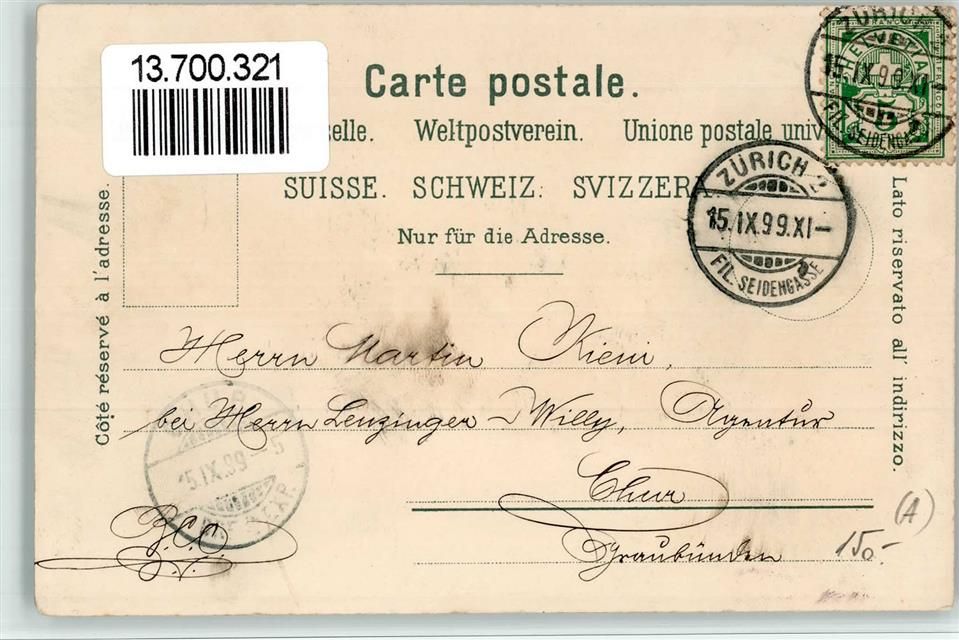 13.700.321
Carte postale.
selle. Weltpostverein. Unione postale univ
SUISSE. SCHWEIZ. SVIZZERA
Nur für die Adresse.
Côté réservé à l'adresse.
Lato riservato all' indirizzo.
HELVETIA
FRANCO
5
ZÜRICH 2
15.IX.99.XI—
FIL. SEIDENGASSE
ZÜRICH 2
15.IX.99.XI—
FIL. SEIDENGASSE
Herrn Martin Kieni,
bei Herrn Lenzinger-Willy, Agentur
Chur
Graubünden
15.IX.99
(A)
150.-